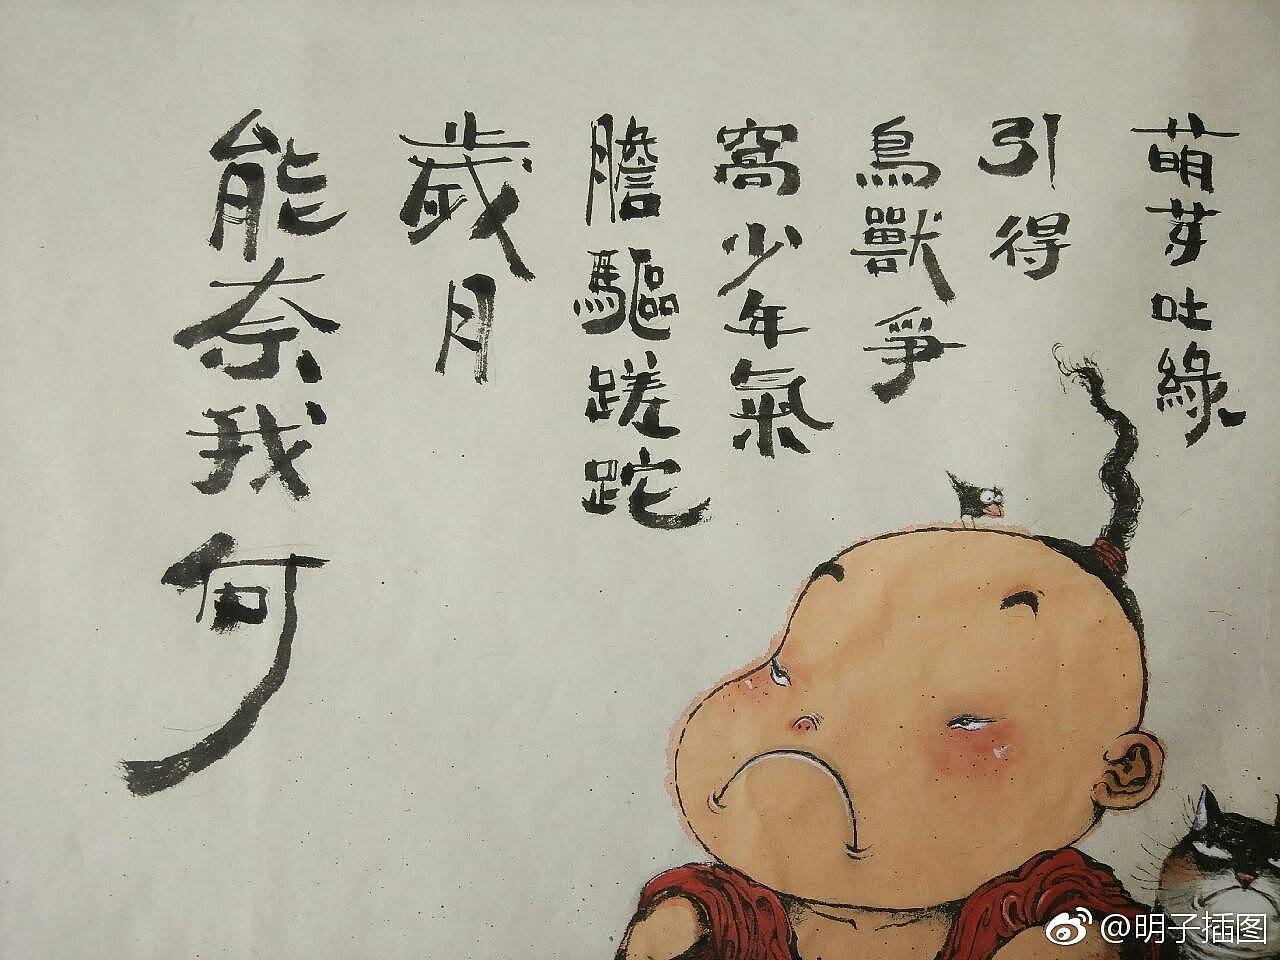 萌芽吐綠
引得
鳥獸爭
窩少年氣
膽驅蹉跎
歲月
能奈我何
@明子插图